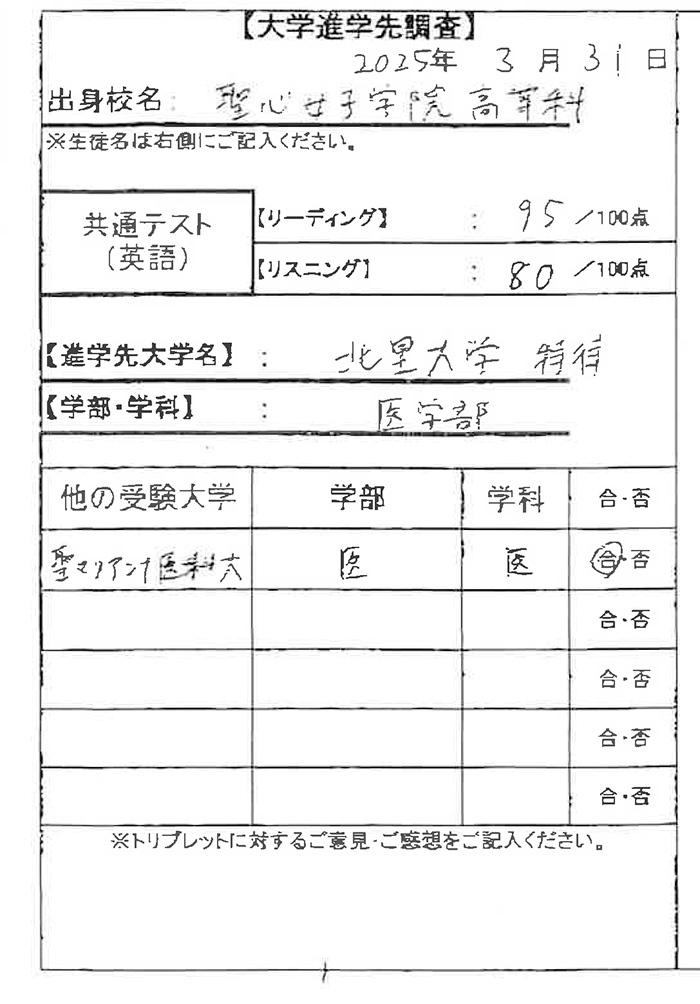 【大学進学先調査】
2025年 3月31日
出身校名： 聖心女子学院高等科
※生徒名は右側にご記入ください。
共通テスト
(英語)
【リーディング】 ： 95 /100点
【リスニング】 ： 80 /100点
【進学先大学名】 ： 北里大学 特待
【学部・学科】 ： 医学部
他の受験大学 学部 学科 合・否
聖マリアンナ医科大 医 医 合・否
合・否
合・否
合・否
合・否
※トリプレットに対するご意見・ご感想をご記入ください。